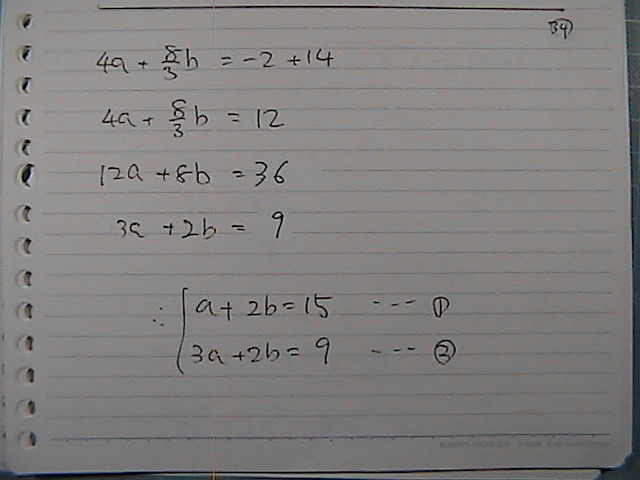 34
4a + 8/3 b = -2 + 14
4a + 8/3 b = 12
12a + 8b = 36
3a + 2b = 9
∴ { a + 2b = 15 --- ①
3a + 2b = 9 --- ③